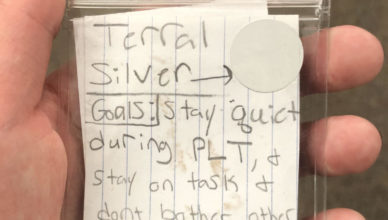 Terral
Silver→
Goals: Stay quiet
during PLT, &
Stay on task &
dont bather other